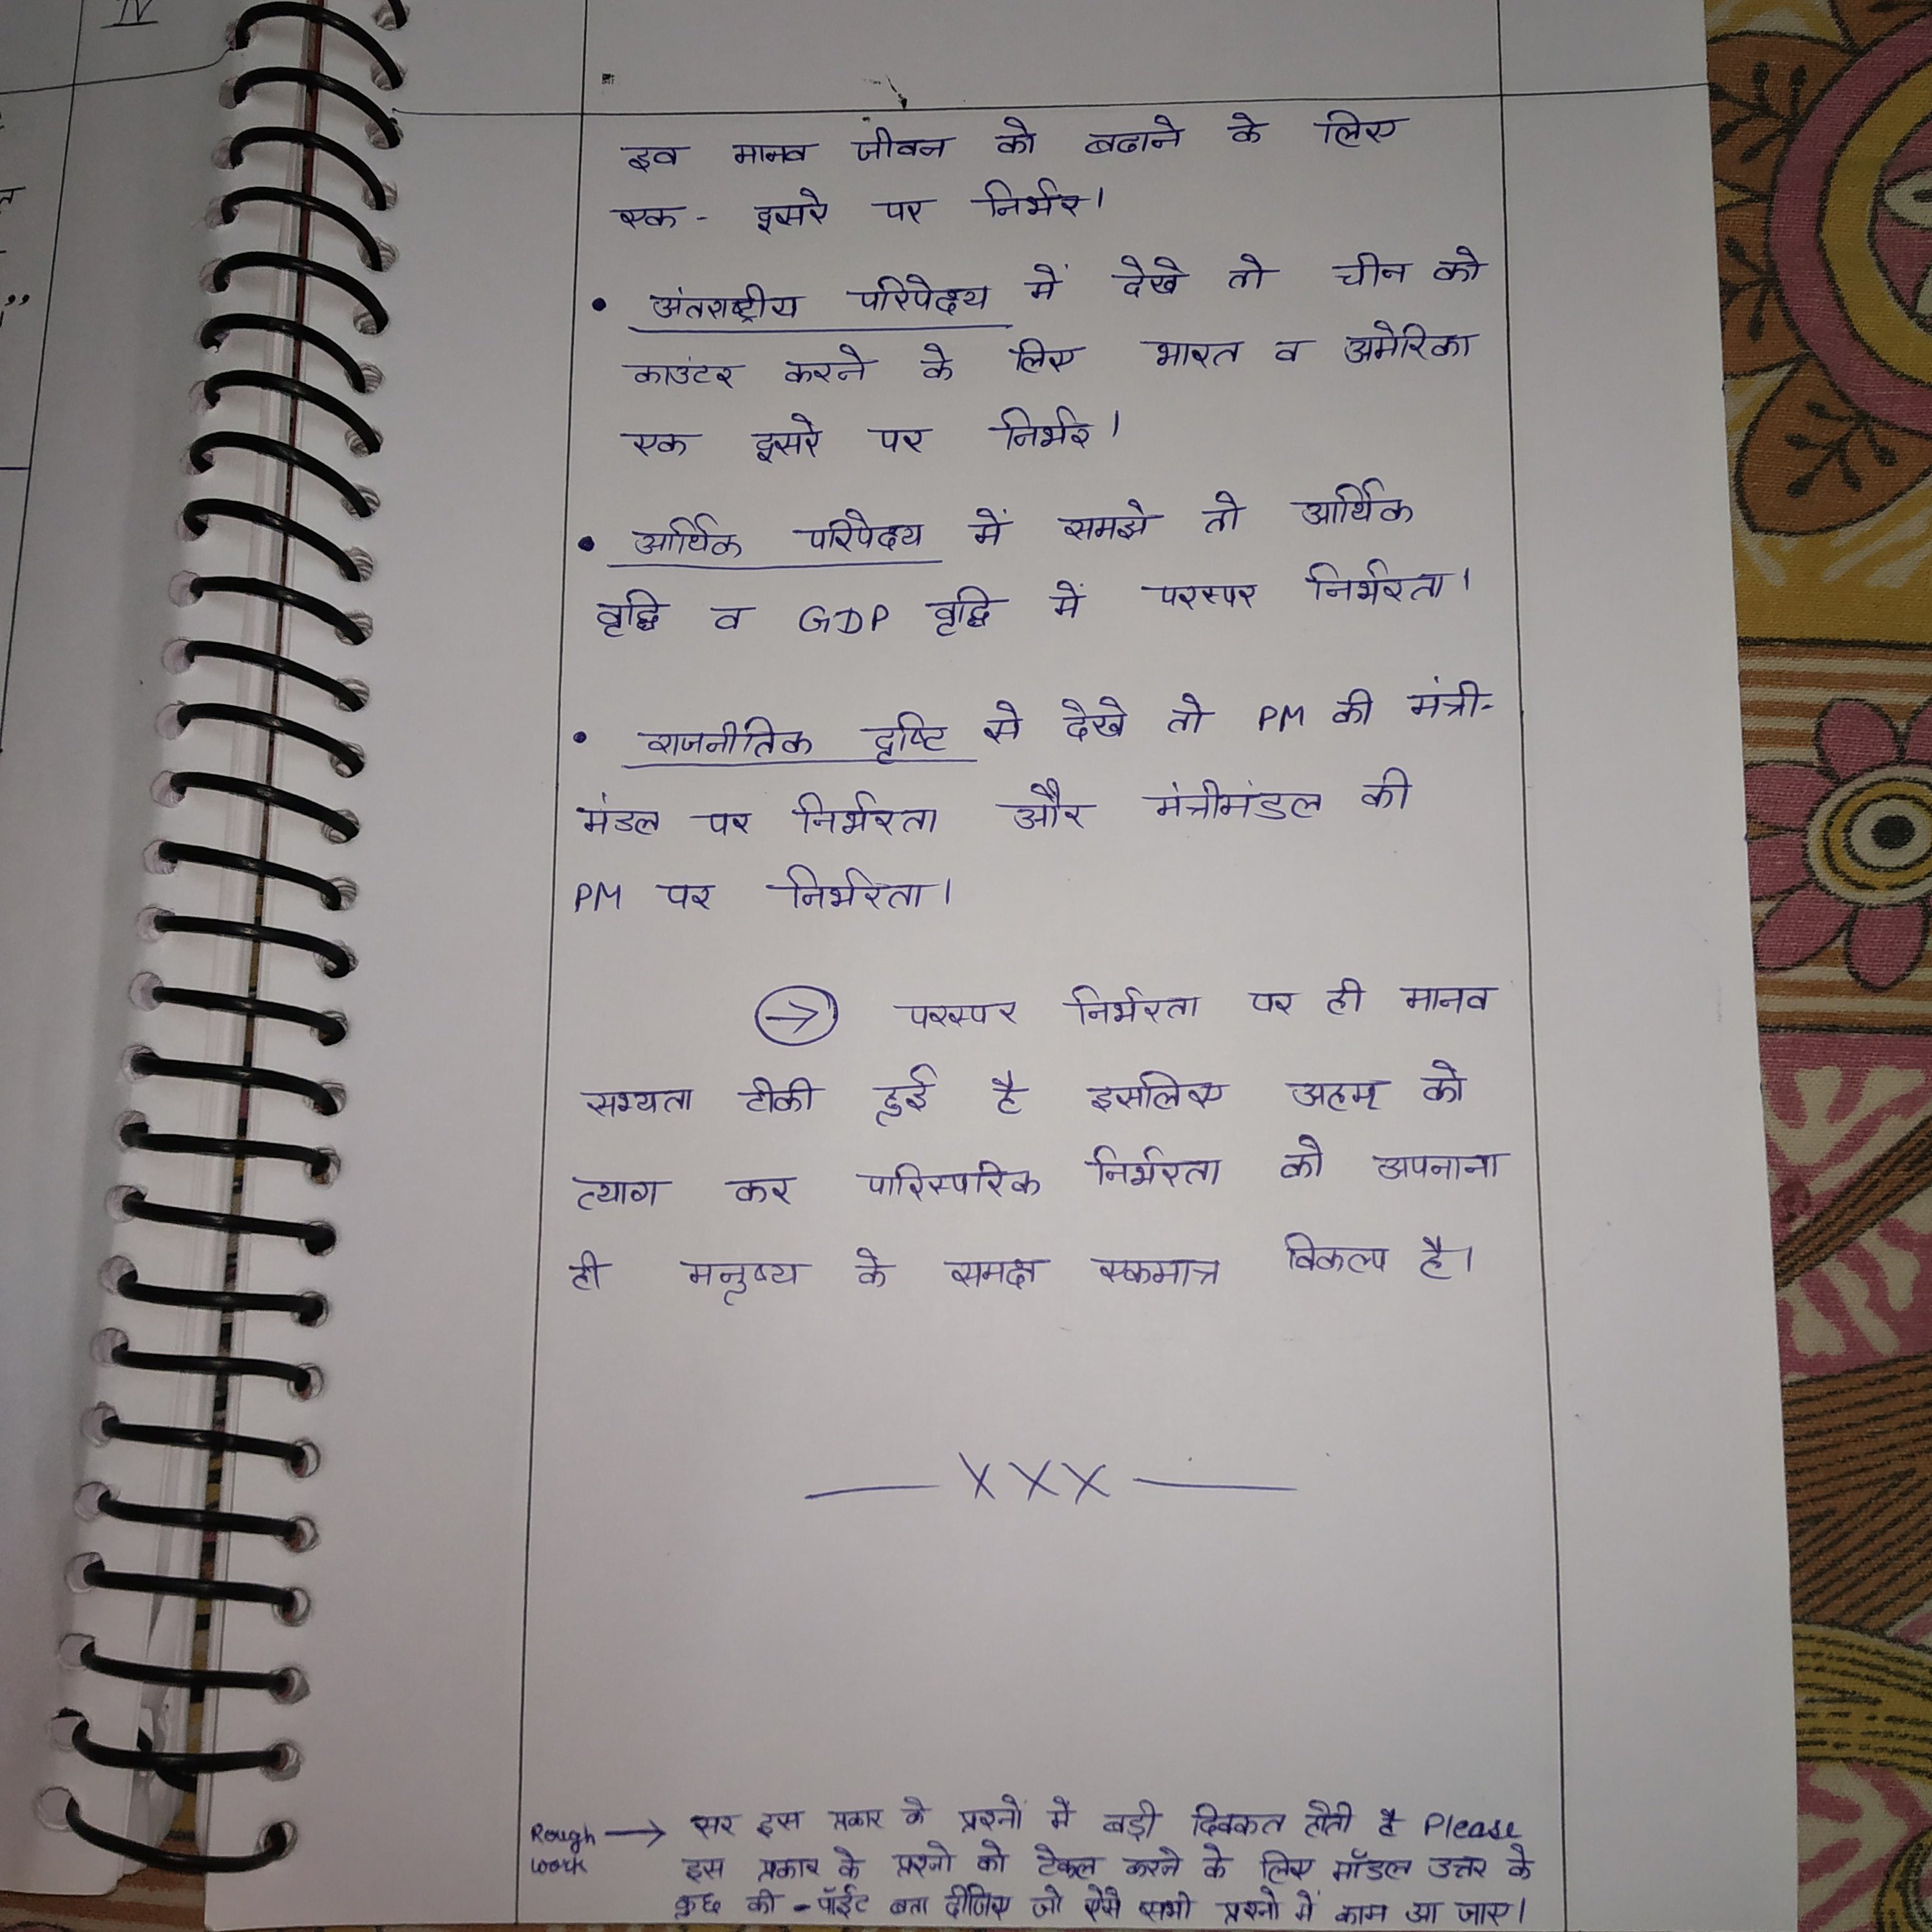 IV
इव मानव जीवन को बढाने के लिए
एक - दूसरे पर निर्भर।
• अंतराष्ट्रीय परिपेक्ष्य में देखे तो चीन को
काउंटर करने के लिए भारत व अमेरिका
एक दूसरे पर निर्भर।
• आर्थिक परिपेक्ष्य में समझे तो आर्थिक
वृद्धि व GDP वृद्धि में परस्पर निर्भरता।
• राजनीतिक दृष्टि से देखे तो PM की मंत्री-
मंडल पर निर्भरता और मंत्रीमंडल की
PM पर निर्भरता।
→ परस्पर निर्भरता पर ही मानव
सभ्यता टीकी हुई है इसलिए अहम् को
त्याग कर पारिस्परिक निर्भरता को अपनाना
ही मनुष्य के समक्ष एकमात्र विकल्प है।
— X X X —
Rough work → सर इस प्रकार के प्रश्नों में बड़ी दिक्कत होती है Please
इस प्रकार के प्रश्नो को टेकल करने के लिए मॉडल उत्तर के
कुछ की-पॉईंट बता दीजिए जो ऐसे सभी प्रश्नो में काम आ जाए।